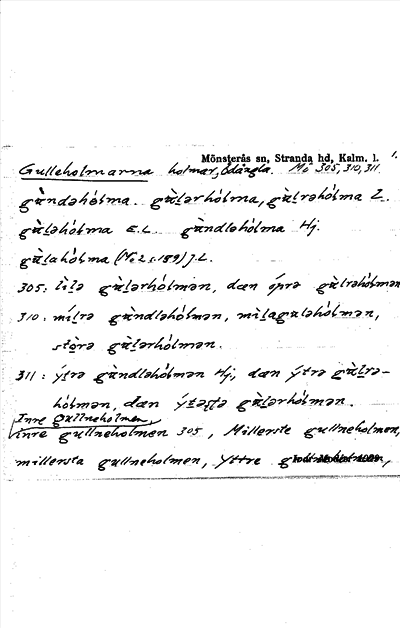 Mönsterås sn, Stranda hd, Kalm. l. 1.
Gulleholmarna holmar, Ödängla. Mö 305, 310, 311
gὰndəhólma. gὰl̲ərhólma, gὰlrəhólma L.
gὰl̲əhólma E.L. gὰndləhólma Hj.
gὰl̲ahólma (Nr 2 s. 189) J.L.
305: lìl̲a gὰl̲ərhólmən, dæn ípra gὰlrəhólmən
310: mílrə gὰndləhólmən, mìl̲agul̲əhólmən,
stòrə gὰl̲ərhólmən.
311: ýt̲rə gὰndləhólmən Hj, dæn ýtrə gὰl̲rə-
hólmən, dæn gὰl̲ərhólmən.
Inre Gullneholmen,
inre gullneholmen 305, Millerste gullneholmen,
millersta gullneholmen, Yttre